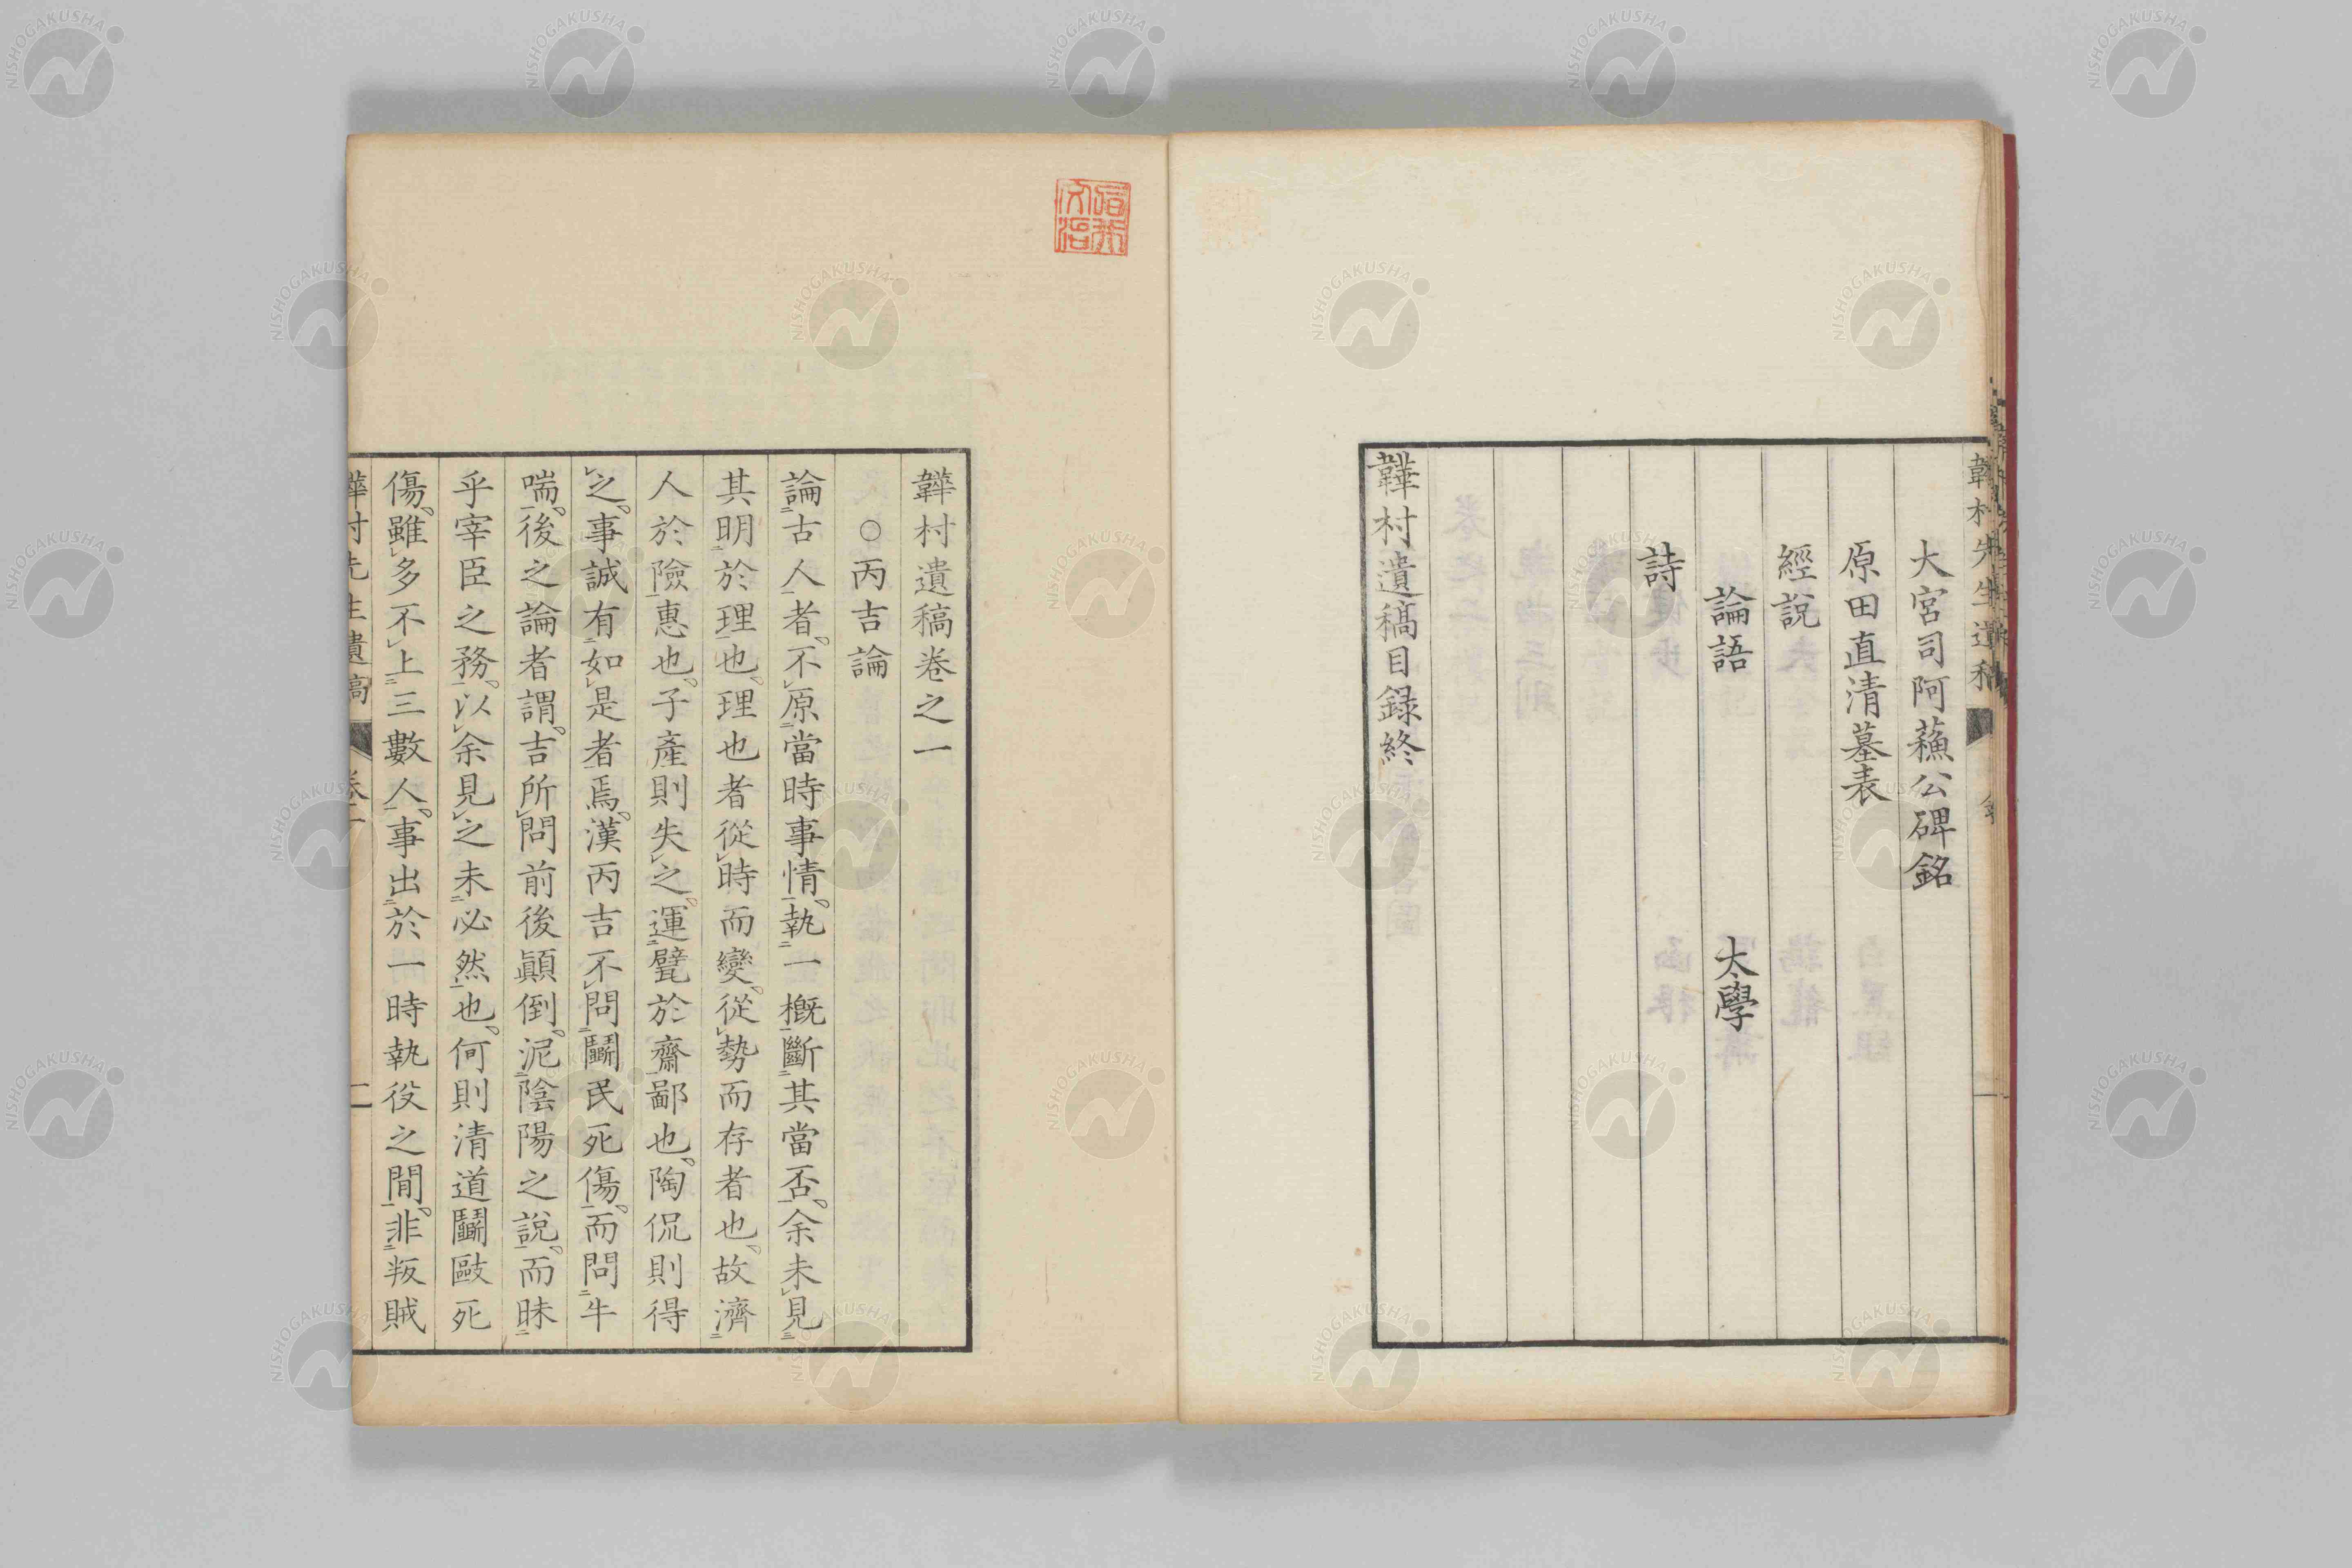 大宮司阿蘓公碑銘
原田直清墓表
經說
論語　太學
詩
韡村遺稿目録終
韡村遺稿卷之一
○丙吉論
論古人者不原當時事情執一概斷其當否余未見
其明於理也理也者從時而變從勢而存者也故濟
人於險惠也子產則失之運甓於齋鄙也陶侃則得
之事誠有如是者焉漢丙吉不問鬭民死傷而問牛
喘後之論者謂吉所問前後顚倒泥陰陽之說而昧
乎宰臣之務以余見之未必然也何則清道鬭毆死
傷雖多不上三數人事出於一時執役之間非叛賊